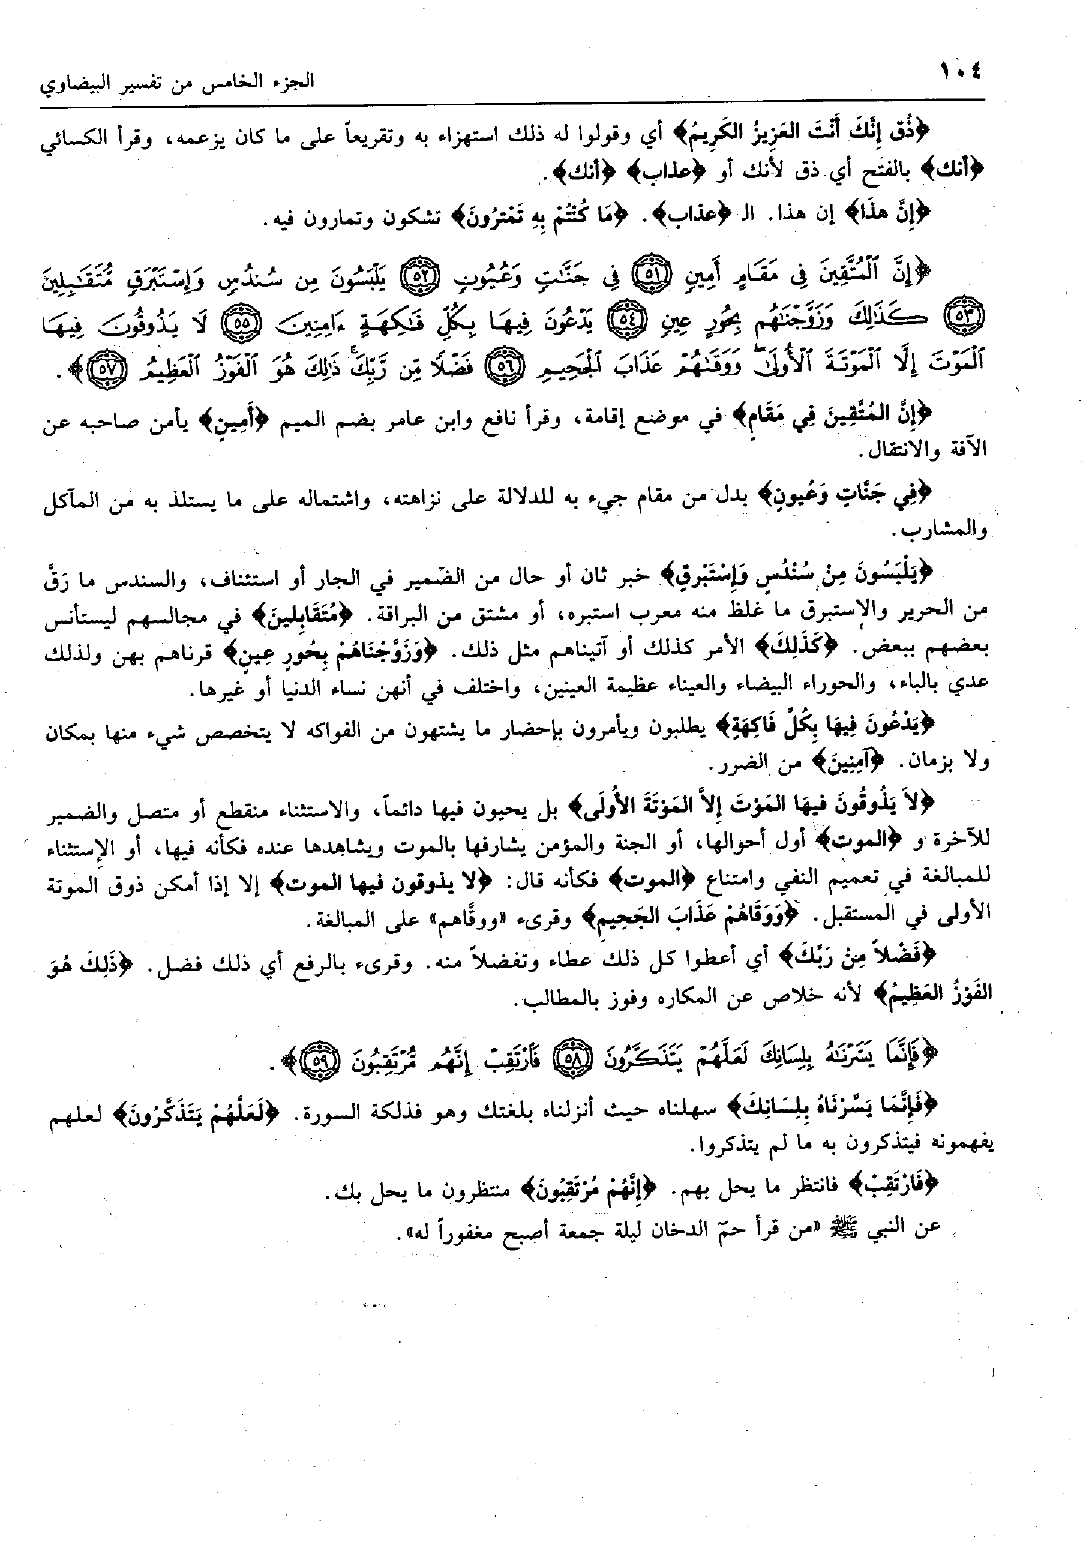 ١٠٤
الجزء الخامس من تفسير البيضاوي
﴿ذُق إِنَّكَ أَنْتَ العَزِيزُ الكَرِيمُ﴾ أي وقولوا له ذلك استهزاء به وتقريعاً على ما كان يزعمه، وقرأ الكسائي
﴿أنك﴾ بالفتح أي ذق لأنك أو ﴿عذاب﴾ ﴿أنك﴾.
﴿إِنَّ هَذَا﴾ إن هذا. الـ ﴿عذاب﴾. ﴿مَا كُنْتُمْ بِهِ تَمْتَرُونَ﴾ تشكون وتمارون فيه.
﴿إِنَّ ٱلْمُتَّقِينَ فِى مَقَامٍ أَمِينٍ ﴿٥١﴾ فِى جَنَّٰتٍ وَعُيُونٍ ﴿٥٢﴾ يَلْبَسُونَ مِن سُندُسٍ وَإِسْتَبْرَقٍ مُّتَقَٰبِلِينَ
﴿٥٣﴾ كَذَٰلِكَ وَزَوَّجْنَٰهُم بِحُورٍ عِينٍ ﴿٥٤﴾ يَدْعُونَ فِيهَا بِكُلِّ فَٰكِهَةٍ ءَامِنِينَ ﴿٥٥﴾ لَا يَذُوقُونَ فِيهَا
ٱلْمَوْتَ إِلَّا ٱلْمَوْتَةَ ٱلْأُولَىٰ وَوَقَىٰهُمْ عَذَابَ ٱلْجَحِيمِ ﴿٥٦﴾ فَضْلًا مِّن رَّبِّكَ ذَٰلِكَ هُوَ ٱلْفَوْزُ ٱلْعَظِيمُ ﴿٥٧﴾﴾.
﴿إِنَّ المُتَّقِينَ فِي مَقَامٍ﴾ في موضع إقامة، وقرأ نافع وابن عامر بضم الميم ﴿أَمِينٍ﴾ يأمن صاحبه عن
الآفة والانتقال.
﴿فِي جَنَّاتٍ وَعُيونٍ﴾ بدل من مقام جيء به للدلالة على نزاهته، واشتماله على ما يستلذ به من المآكل
والمشارب.
﴿يَلْبَسُونَ مِنْ سُنْدُسٍ وَإِسْتَبْرقٍ﴾ خبر ثان أو حال من الضمير في الجار أو استئناف، والسندس ما رَقَّ
من الحرير والإستبرق ما غلظ منه معرب استبره، أو مشتق من البراقة. ﴿مُتَقَابِلينَ﴾ في مجالسهم ليستأنس
بعضهم ببعض. ﴿كَذَلِكَ﴾ الأمر كذلك أو آتيناهم مثل ذلك. ﴿وَزَوَّجْنَاهُمْ بِحُورٍ عِينٍ﴾ قرناهم بهن ولذلك
عدي بالباء، والحوراء البيضاء والعيناء عظيمة العينين، واختلف في أنهن نساء الدنيا أو غيرها.
﴿يَدْعُونَ فِيهَا بِكُلِّ فَاكِهَةٍ﴾ يطلبون ويأمرون بإحضار ما يشتهون من الفواكه لا يتخصص شيء منها بمكان
ولا بزمان. ﴿آمِنِينَ﴾ من الضرر.
﴿لاَ يَذُوقُونَ فِيهَا المَوْتَ إِلاَّ المَوْتَةَ الأُولَى﴾ بل يحيون فيها دائماً، والاستثناء منقطع أو متصل والضمير
للآخرة و ﴿الموت﴾ أول أحوالها، أو الجنة والمؤمن يشارفها بالموت ويشاهدها عنده فكأنه فيها، أو الإستثناء
للمبالغة في تعميم النفي وامتناع ﴿الموت﴾ فكأنه قال: ﴿لا يذوقون فيها الموت﴾ إلا إذا أمكن ذوق الموتة
الأولى في المستقبل. ﴿وَوَقَاهُمْ عَذَابَ الجَحِيمِ﴾ وقرىء «ووقَّاهم» على المبالغة.
﴿فَضْلاً مِنْ رَبِّكَ﴾ أي أعطوا كل ذلك عطاء وتفضلاً منه. وقرىء بالرفع أي ذلك فضل. ﴿ذَلِكَ هُوَ
الفَوْزُ العَظِيمُ﴾ لأنه خلاص عن المكاره وفوز بالمطالب.
﴿فَإِنَّمَا يَسَّرْنَٰهُ بِلِسَانِكَ لَعَلَّهُمْ يَتَذَكَّرُونَ ﴿٥٨﴾ فَٱرْتَقِبْ إِنَّهُم مُّرْتَقِبُونَ ﴿٥٩﴾﴾.
﴿فَإِنَّمَا يَسَّرْنَاهُ بِلِسَانِكَ﴾ سهلناه حيث أنزلناه بلغتك وهو فذلكة السورة. ﴿لَعَلَّهُمْ يَتَذَكَّرُونَ﴾ لعلهم
يفهمونه فيتذكرون به ما لم يتذكروا.
﴿فَارْتَقِبْ﴾ فانتظر ما يحل بهم. ﴿إِنَّهُمْ مُرْتَقِبُونَ﴾ منتظرون ما يحل بك.
عن النبي ﷺ «من قرأ حمّ الدخان ليلة جمعة أصبح مغفوراً له».